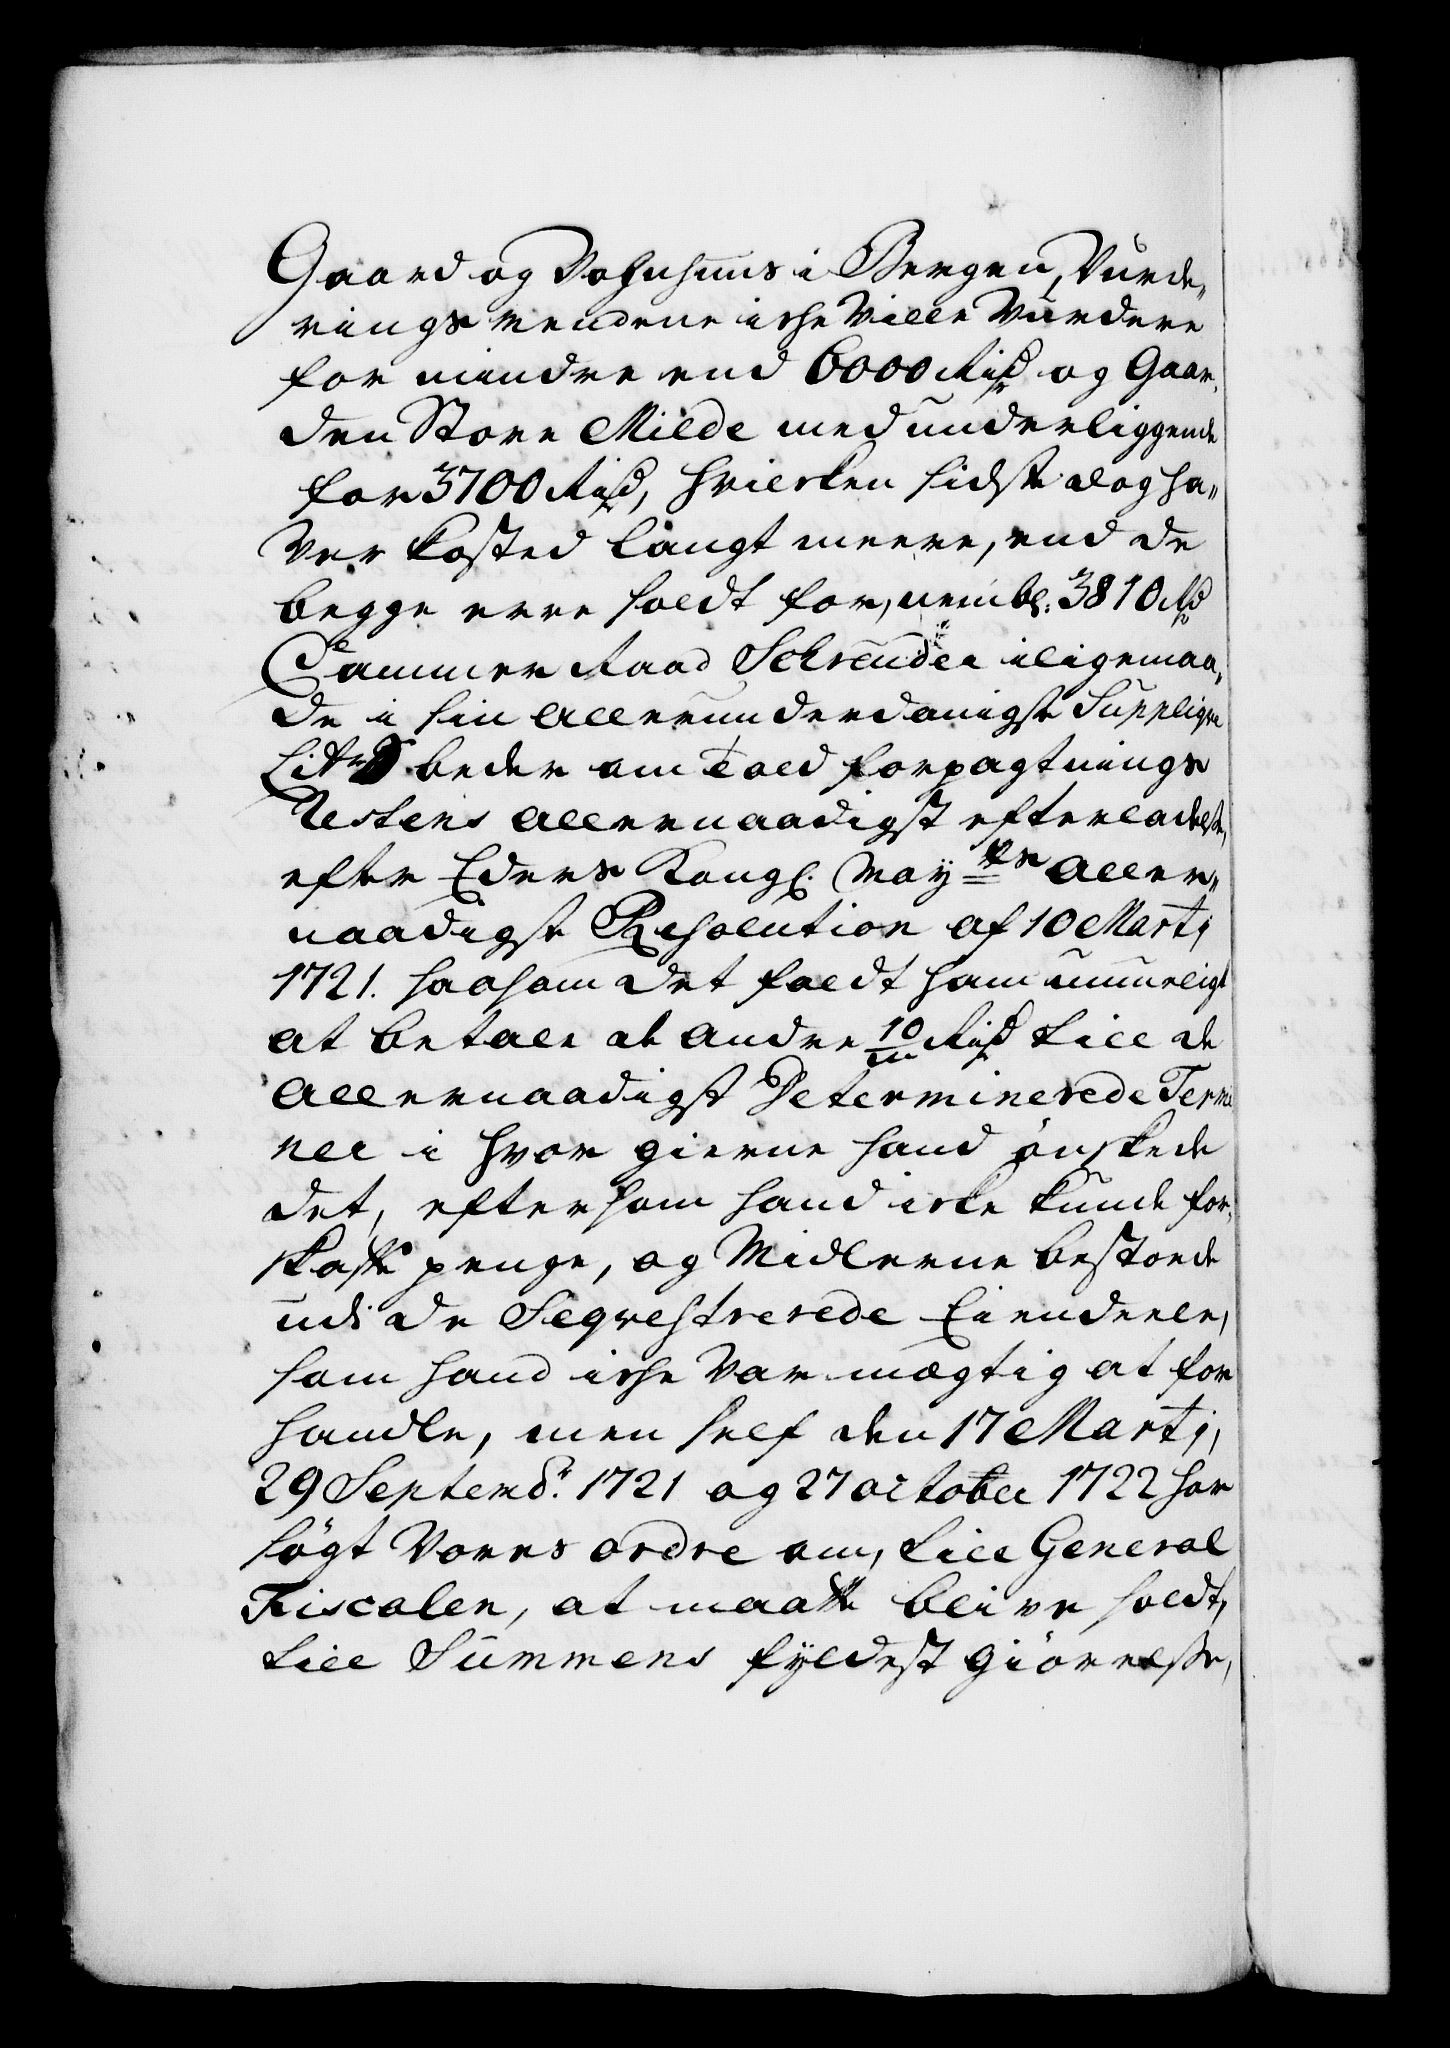 Gaard og Vohnhuus i Bergen, Vurde„
rings mendene icke Ville Vurdere
for mindre end 6000 Rixd og Gaar„
den Store Milde med underliggende
for 3700 Rixd, hvilcken sidste dog ha„
Ver kosted langt meere, end de
begge ere soldt for, nembl: 3810 Rd
Cammer Raad Schreuder iligemaa„
de i sin allerunderdanigste Suppliqve
Litr D. beder om Told forpagtnings
Restens allernaadigst efterladelse,
efter Eders Kongl. May=ts aller„
naadigste Resolution af 10 Martj
1721. saasom det faldt ham umueligt
at betale de andre 10/m Rixd till de
allernaadigst Determinerede Termi
ner i hvor gierne hand ønskede
det, eftersom hand icke kunde for„
skaffe penge, og Midlerne bestoede
udi de Seqvestrerede Eiendeele,
som hand icke Var mægtig at for
handle, men self den 17 Martj,
29 Septembr: 1721 og 27 october 1722 har
søgt Vores ordre om, till General
Fiscalen, at maatte blive soldt,
till Summens fyldest giørelse,